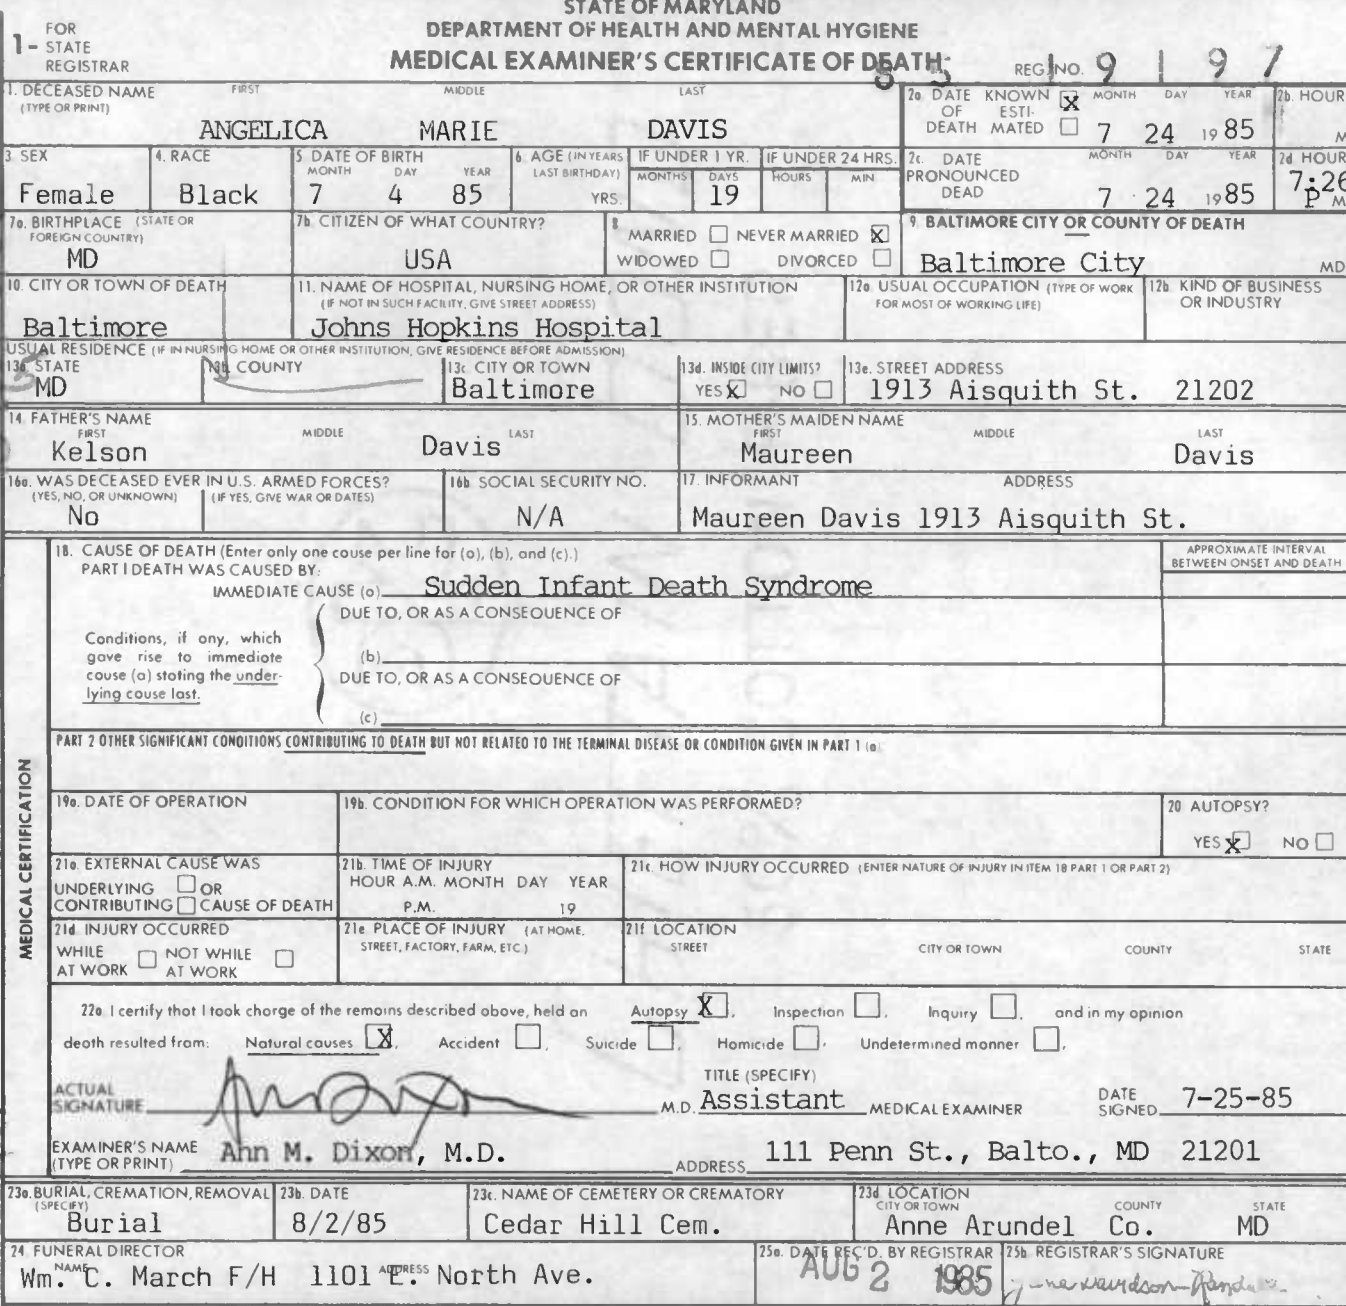 STATE OF MARYLAND
DEPARTMENT OF HEALTH AND MENTAL HYGIENE
MEDICAL EXAMINER'S CERTIFICATE OF DEATH
1- FOR STATE REGISTRAR
REG. NO. 85 19197
1. DECEASED NAME (TYPE OR PRINT) FIRST MIDDLE LAST
ANGELICA MARIE DAVIS
2a. DATE OF DEATH KNOWN X ESTIMATED MONTH DAY YEAR
7 24 1985
2b. HOUR M
3. SEX
Female
4. RACE
Black
5. DATE OF BIRTH MONTH DAY YEAR
7 4 85
6. AGE (IN YEARS LAST BIRTHDAY) YRS.
IF UNDER 1 YR. MONTHS DAYS
19
IF UNDER 24 HRS. HOURS MIN
2c. DATE PRONOUNCED DEAD MONTH DAY YEAR
7 24 1985
2d HOUR
7:26 P M
7a. BIRTHPLACE (STATE OR FOREIGN COUNTRY)
MD
7b. CITIZEN OF WHAT COUNTRY?
USA
8 MARRIED NEVER MARRIED X
WIDOWED DIVORCED
9. BALTIMORE CITY OR COUNTY OF DEATH
Baltimore City MD
10. CITY OR TOWN OF DEATH
Baltimore
11. NAME OF HOSPITAL, NURSING HOME, OR OTHER INSTITUTION
(IF NOT IN SUCH FACILITY, GIVE STREET ADDRESS)
Johns Hopkins Hospital
12a. USUAL OCCUPATION (TYPE OF WORK FOR MOST OF WORKING LIFE)
12b. KIND OF BUSINESS OR INDUSTRY
USUAL RESIDENCE (IF IN NURSING HOME OR OTHER INSTITUTION, GIVE RESIDENCE BEFORE ADMISSION)
13a. STATE
MD
13b. COUNTY
13c. CITY OR TOWN
Baltimore
13d. INSIDE CITY LIMITS?
YES X NO
13e. STREET ADDRESS
1913 Aisquith St. 21202
14. FATHER'S NAME FIRST MIDDLE LAST
Kelson Davis
15. MOTHER'S MAIDEN NAME FIRST MIDDLE LAST
Maureen Davis
16a. WAS DECEASED EVER IN U.S. ARMED FORCES?
(YES, NO, OR UNKNOWN) (IF YES, GIVE WAR OR DATES)
No
16b. SOCIAL SECURITY NO.
N/A
17. INFORMANT ADDRESS
Maureen Davis 1913 Aisquith St.
MEDICAL CERTIFICATION
18. CAUSE OF DEATH (Enter only one cause per line for (a), (b), and (c).)
PART I DEATH WAS CAUSED BY:
IMMEDIATE CAUSE (a) Sudden Infant Death Syndrome
APPROXIMATE INTERVAL BETWEEN ONSET AND DEATH
Conditions, if any, which gave rise to immediate cause (a) stating the underlying cause last.
DUE TO, OR AS A CONSEQUENCE OF
(b)
DUE TO, OR AS A CONSEQUENCE OF
(c)
PART 2 OTHER SIGNIFICANT CONDITIONS CONTRIBUTING TO DEATH BUT NOT RELATED TO THE TERMINAL DISEASE OR CONDITION GIVEN IN PART 1 (a)
19a. DATE OF OPERATION
19b. CONDITION FOR WHICH OPERATION WAS PERFORMED?
20 AUTOPSY?
YES X NO
21a. EXTERNAL CAUSE WAS
UNDERLYING OR
CONTRIBUTING CAUSE OF DEATH
21b. TIME OF INJURY
HOUR A.M. MONTH DAY YEAR
P.M. 19
21c. HOW INJURY OCCURRED (ENTER NATURE OF INJURY IN ITEM 18 PART 1 OR PART 2)
21d INJURY OCCURRED
WHILE AT WORK NOT WHILE AT WORK
21e PLACE OF INJURY (AT HOME, STREET, FACTORY, FARM, ETC.)
21f LOCATION
STREET CITY OR TOWN COUNTY STATE
22a I certify that I took charge of the remains described above, held an Autopsy X, Inspection, Inquiry, and in my opinion
death resulted from: Natural causes X, Accident, Suicide, Homicide, Undetermined manner.
ACTUAL SIGNATURE M.D.
TITLE (SPECIFY)
Assistant MEDICAL EXAMINER
DATE SIGNED 7-25-85
EXAMINER'S NAME (TYPE OR PRINT) Ann M. Dixon, M.D.
ADDRESS 111 Penn St., Balto., MD 21201
23a. BURIAL, CREMATION, REMOVAL (SPECIFY)
Burial
23b. DATE
8/2/85
23c. NAME OF CEMETERY OR CREMATORY
Cedar Hill Cem.
23d LOCATION
CITY OR TOWN COUNTY STATE
Anne Arundel Co. MD
24. FUNERAL DIRECTOR
NAME ADDRESS
Wm. C. March F/H 1101 E. North Ave.
25a. DATE REC'D. BY REGISTRAR
AUG 2 1985
25b. REGISTRAR'S SIGNATURE